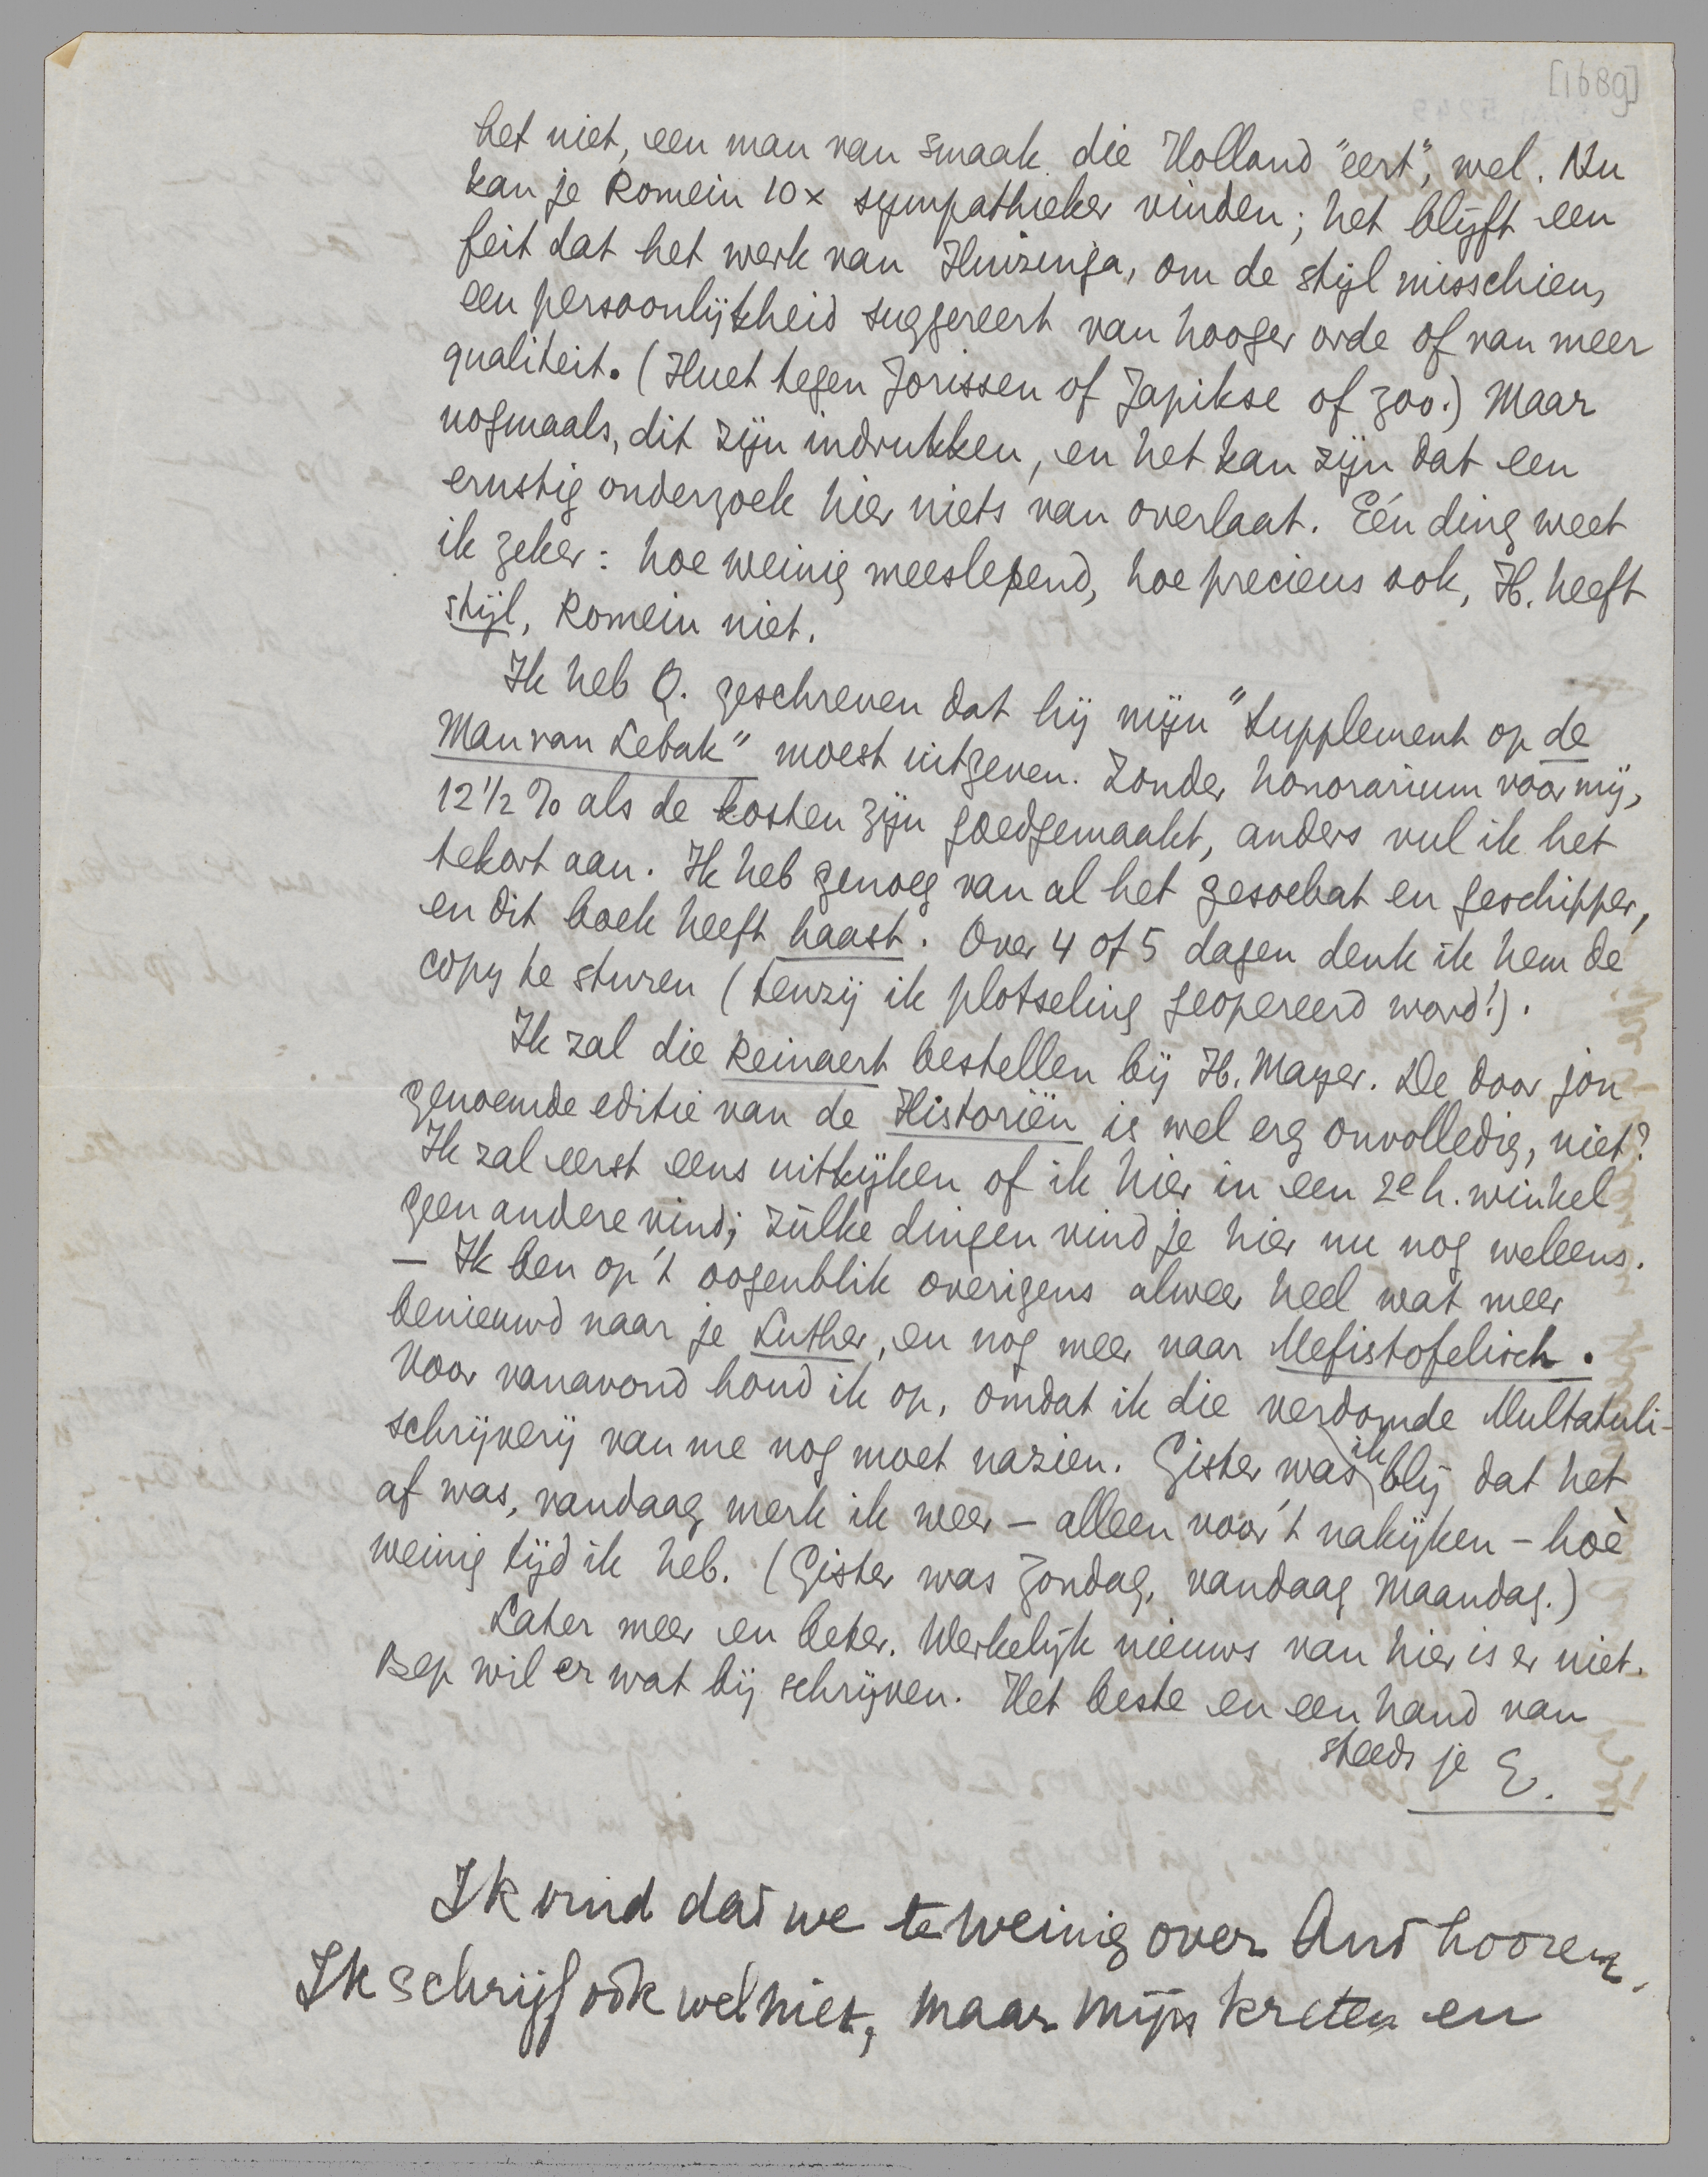 [1689]
het niet, een man van smaak die Holland "eert", wel. Nu
kan je Romein 10 x sympathieker vinden; het blijft een
feit dat het werk van Huizinga, om de stijl misschien,
een persoonlijkheid suggereert van hooger orde of van meer
qualiteit. (Huet tegen Jorissen of Japikse of zoo.) Maar
nogmaals, dit zijn indrukken, en het kan zijn dat een
ernstig onderzoek hier niets van overlaat. Eén ding weet
ik zeker: hoe weinig meeslepend, hoe precieus ook, H. heeft
stijl, Romein niet.
Ik heb Q. geschreven dat hij mijn "Supplement op de
Man van Lebak" moest uitgeven. Zonder honorarium voor mij,
12 1/2 % als de kosten zijn goedgemaakt, anders vul ik het
tekort aan. Ik heb genoeg van al het gesoebat en geschipper,
en dit boek heeft haast. Over 4 of 5 dagen denk ik hem de
copy te sturen (tenzij ik plotseling geopereerd word!).
Ik zal die Reinaert bestellen bij H. Mayer. De door jou
genoemde editie van de Historiën is wel erg onvolledig, niet?
Ik zal eerst eens uitkijken of ik hier in een 2e h. winkel
geen andere vind; zùlke dingen vind je hier nu nog weleens.
— Ik ben op 't oogenblik overigens alweer heel wat meer
benieuwd naar je Luther, en nog meer naar Mefistofelisch.
Voor vanavond houd ik op, omdat ik die verdomde Multatuli-
schrijverij van me nog moet nazien. Gister was ik blij dat het
af was, vandaag merk ik weer – alleen voor 't nakijken – hoè
weinig tijd ik heb. (Gister was Zondag, vandaag Maandag.)
Later meer en beter. Werkelijk nieuws van hier is er niet.
Bep wil er wat bij schrijven. Het beste en een hand van
steeds je E.
Ik vind dat we te weinig over Ant hooren.
Ik schrijf ook wel niet, maar mijn kreten en